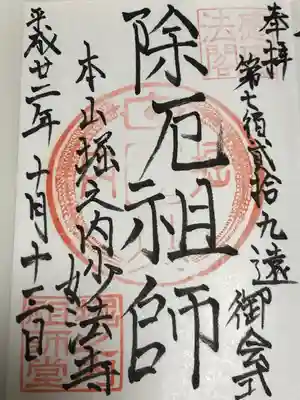 奉拝
第七百弐拾九遠御会式
除厄祖師
本山堀之内妙法寺
平成廿二年十月十三日